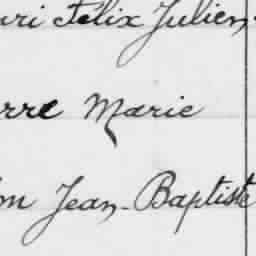 uri Felix Julien
rre Marie
on Jean-Baptiste